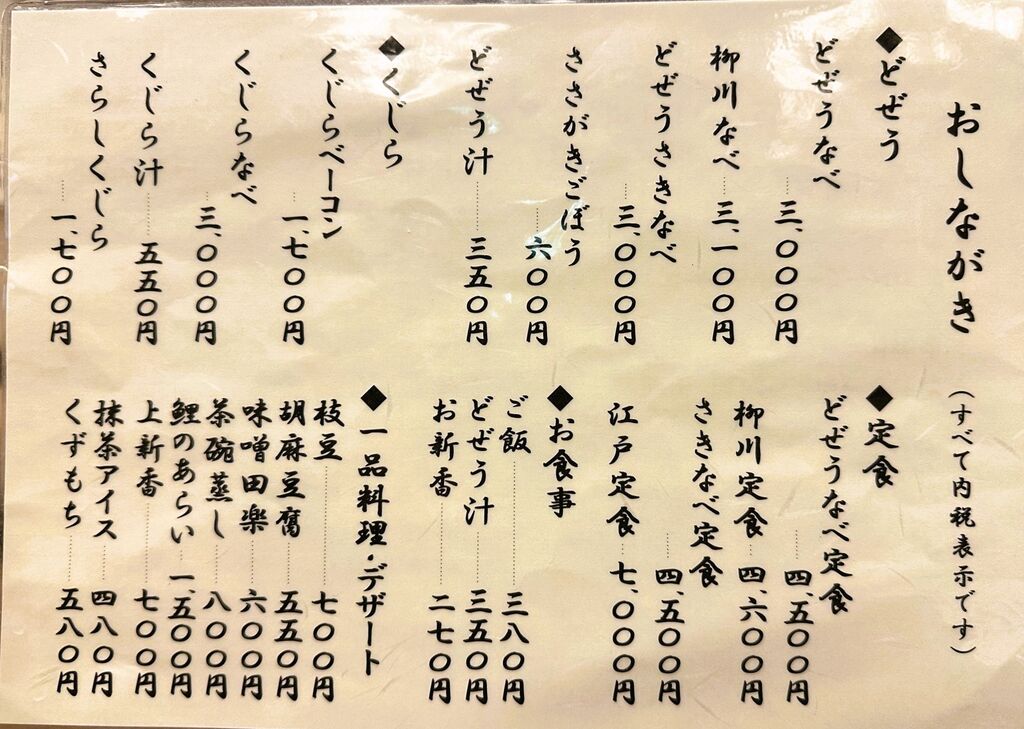 おしながき
（すべて内税表示です）
◆どぜう
どぜうなべ
三、〇〇〇円
柳川なべ 三、一〇〇円
どぜうさきなべ
三、〇〇〇円
ささがきごぼう
六〇〇円
どぜう汁 三五〇円
◆くじら
くじらベーコン
一、七〇〇円
くじらなべ
三、〇〇〇円
くじら汁 五五〇円
さらしくじら
一、七〇〇円
◆定食
どぜうなべ定食
四、五〇〇円
柳川定食 四、六〇〇円
さきなべ定食
四、五〇〇円
江戸定食 七、〇〇〇円
◆お食事
ご飯 三八〇円
どぜう汁 三五〇円
お新香 二七〇円
◆一品料理・デザート
枝豆 七〇〇円
胡麻豆腐 五五〇円
味噌田楽 六〇〇円
茶碗蒸し 八〇〇円
鯉のあらい 一、五〇〇円
上新香 七〇〇円
抹茶アイス 四八〇円
くずもち 五八〇円